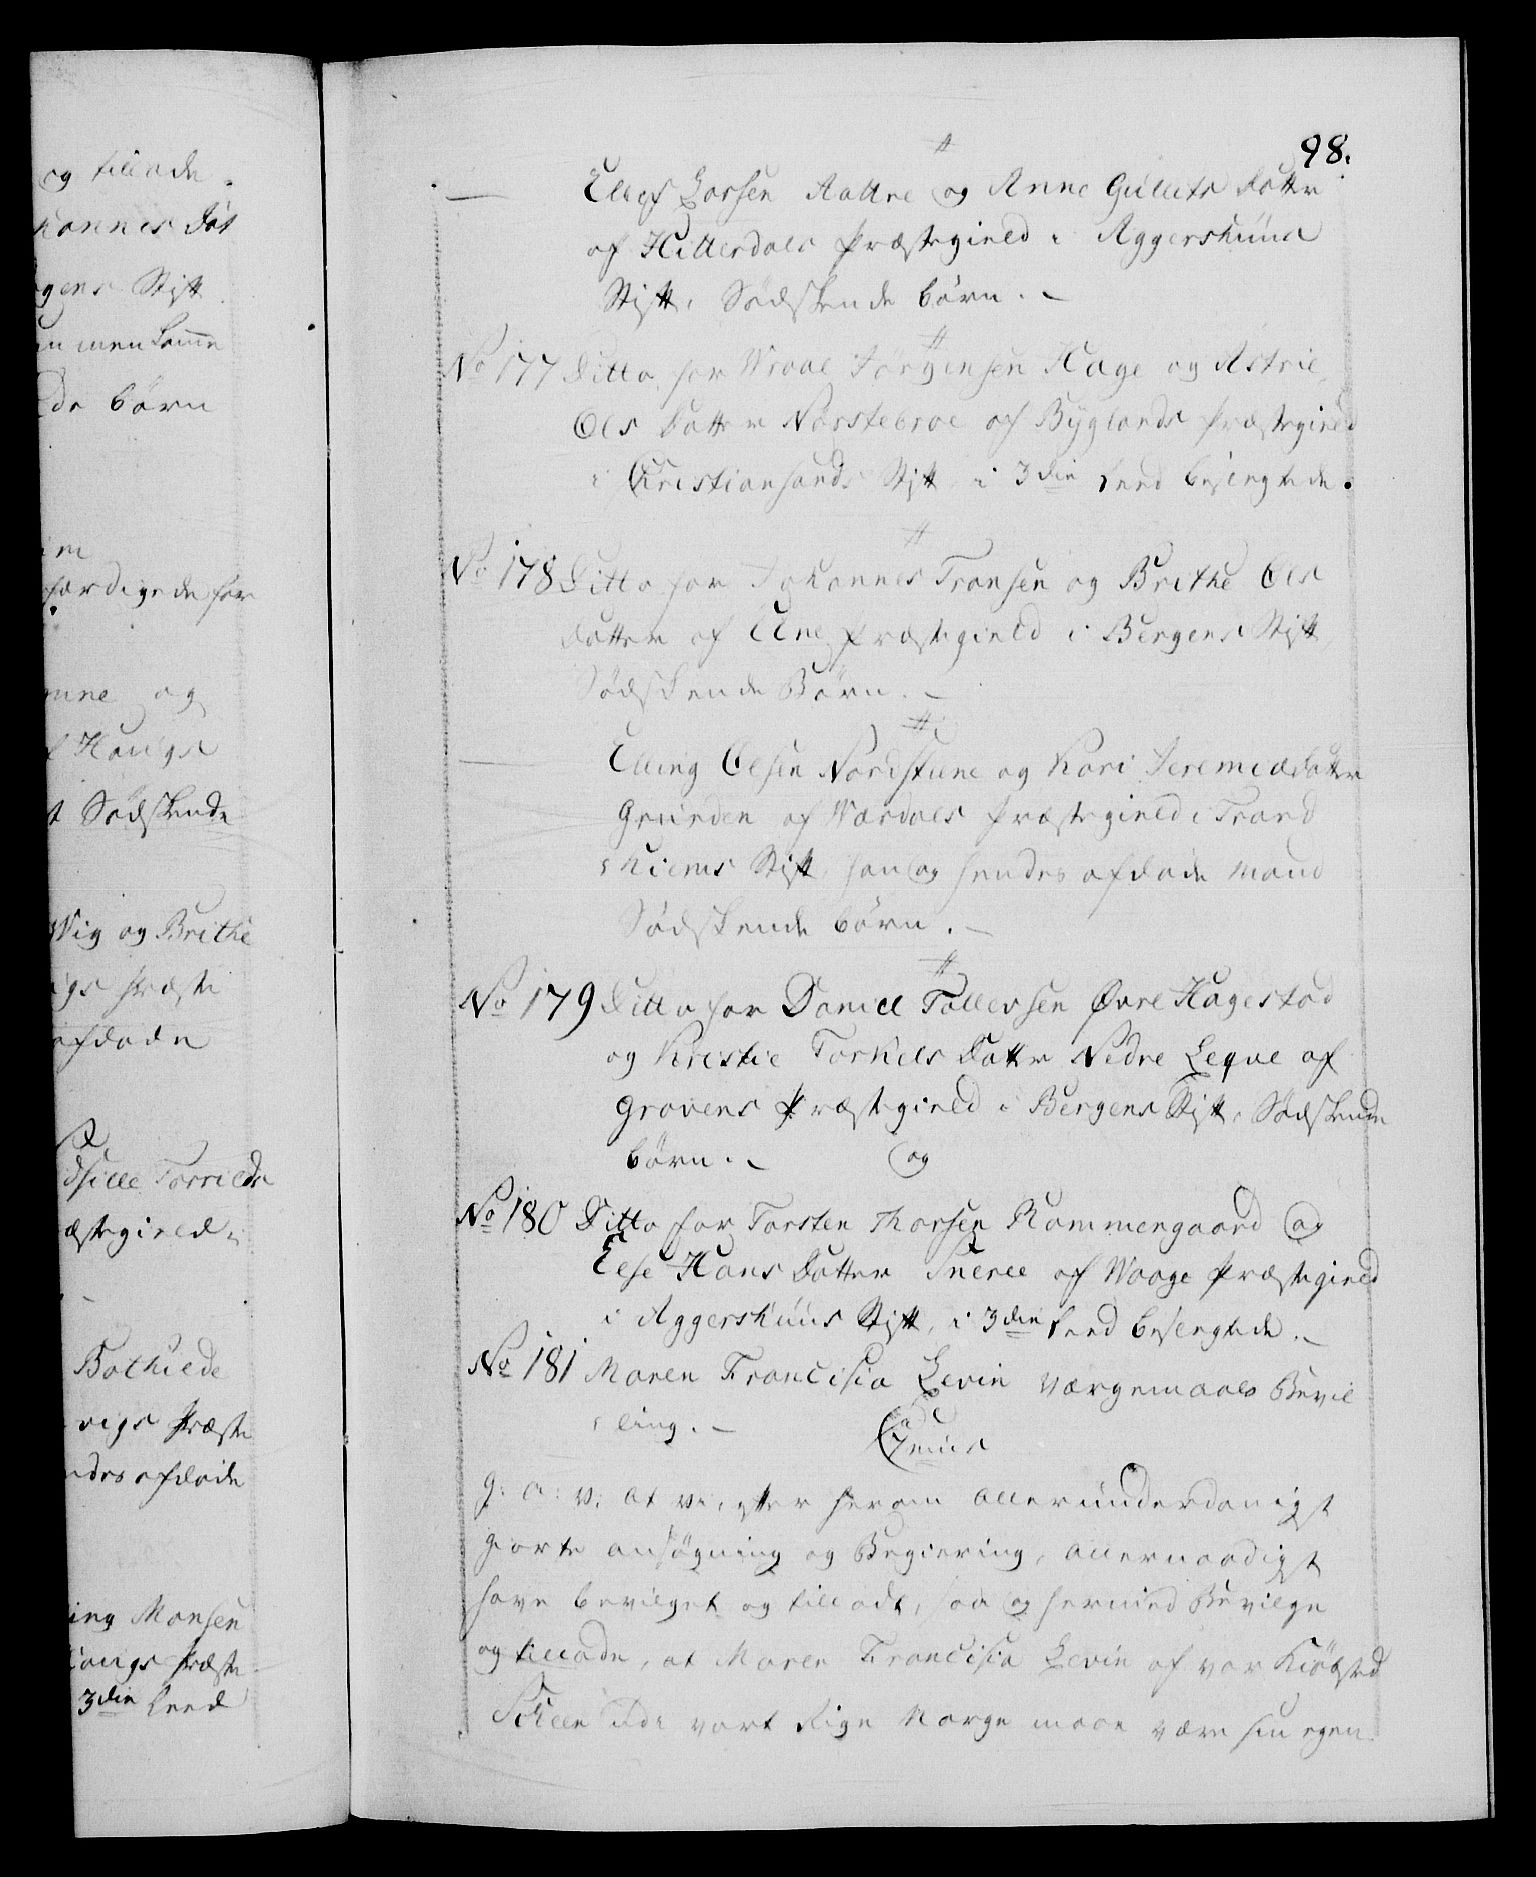 og tillade.
hannes Dat
gens Stift
en men Samme
de børn
færdigede for
mme og
f Haugs
t Sødskende
Wig og Brithe
igs Præste
afdøde
dsille Torrilds
æstegield i
Bothilde
vigs Præste
endes afdøde
ing Monsen
Laugs Præste
3die Leed
98.
Ellef Larsen Aattne og Anne Gullets Datter
af Hitterdals Præstegield i Aggershuus
Stift, Sødskende børn. -
No 177 Ditto for Wraal Jorgensen Hage og Astrie
Ols Datter Norstebroe af Byglands Præstegield
i Christiansands Stift, i 3die Leed besvegtede.
No 178 Ditto for Johannes Transen og Brithe Ols
datter af Elne Præstegield i Bergens Stift,
Sødskende Børn. -
Elling Olsen Nordstuene og Kari Jeremiædatter
Grunden af Wærdals Præstegield i Trond
hiems Stift, han og hendes afdøde Mand
Sødskende børn. -
No 179 Ditto for Daniel Tollevsen Øvre Hagestad
og Kristie Torkels Datter Nedre Leqve af
Gravens Præstegield i Bergens Stift, Sødskende
børn. - og
No 180 Ditto for Torsten Thorsen Rammengaard og
Else Hans Datter Snerle af Waage Præstegield
i Aggershuus Stift, i 3die Leed besvegtede. -
No 181 Maren Francisia Levin Værgemaals Bevil
ling. -
C 7mus
G: A: V: At vi, efter herom allerunderdanigst
giorte ansøgning og Begiering, allernaadigst
have bevilget og tilladt, saa og hermed Bevilge
og tillade, at Maren Francisia Levin af vor Kiøbsted
Scheen udi vort Rige Norge maae være sin egen